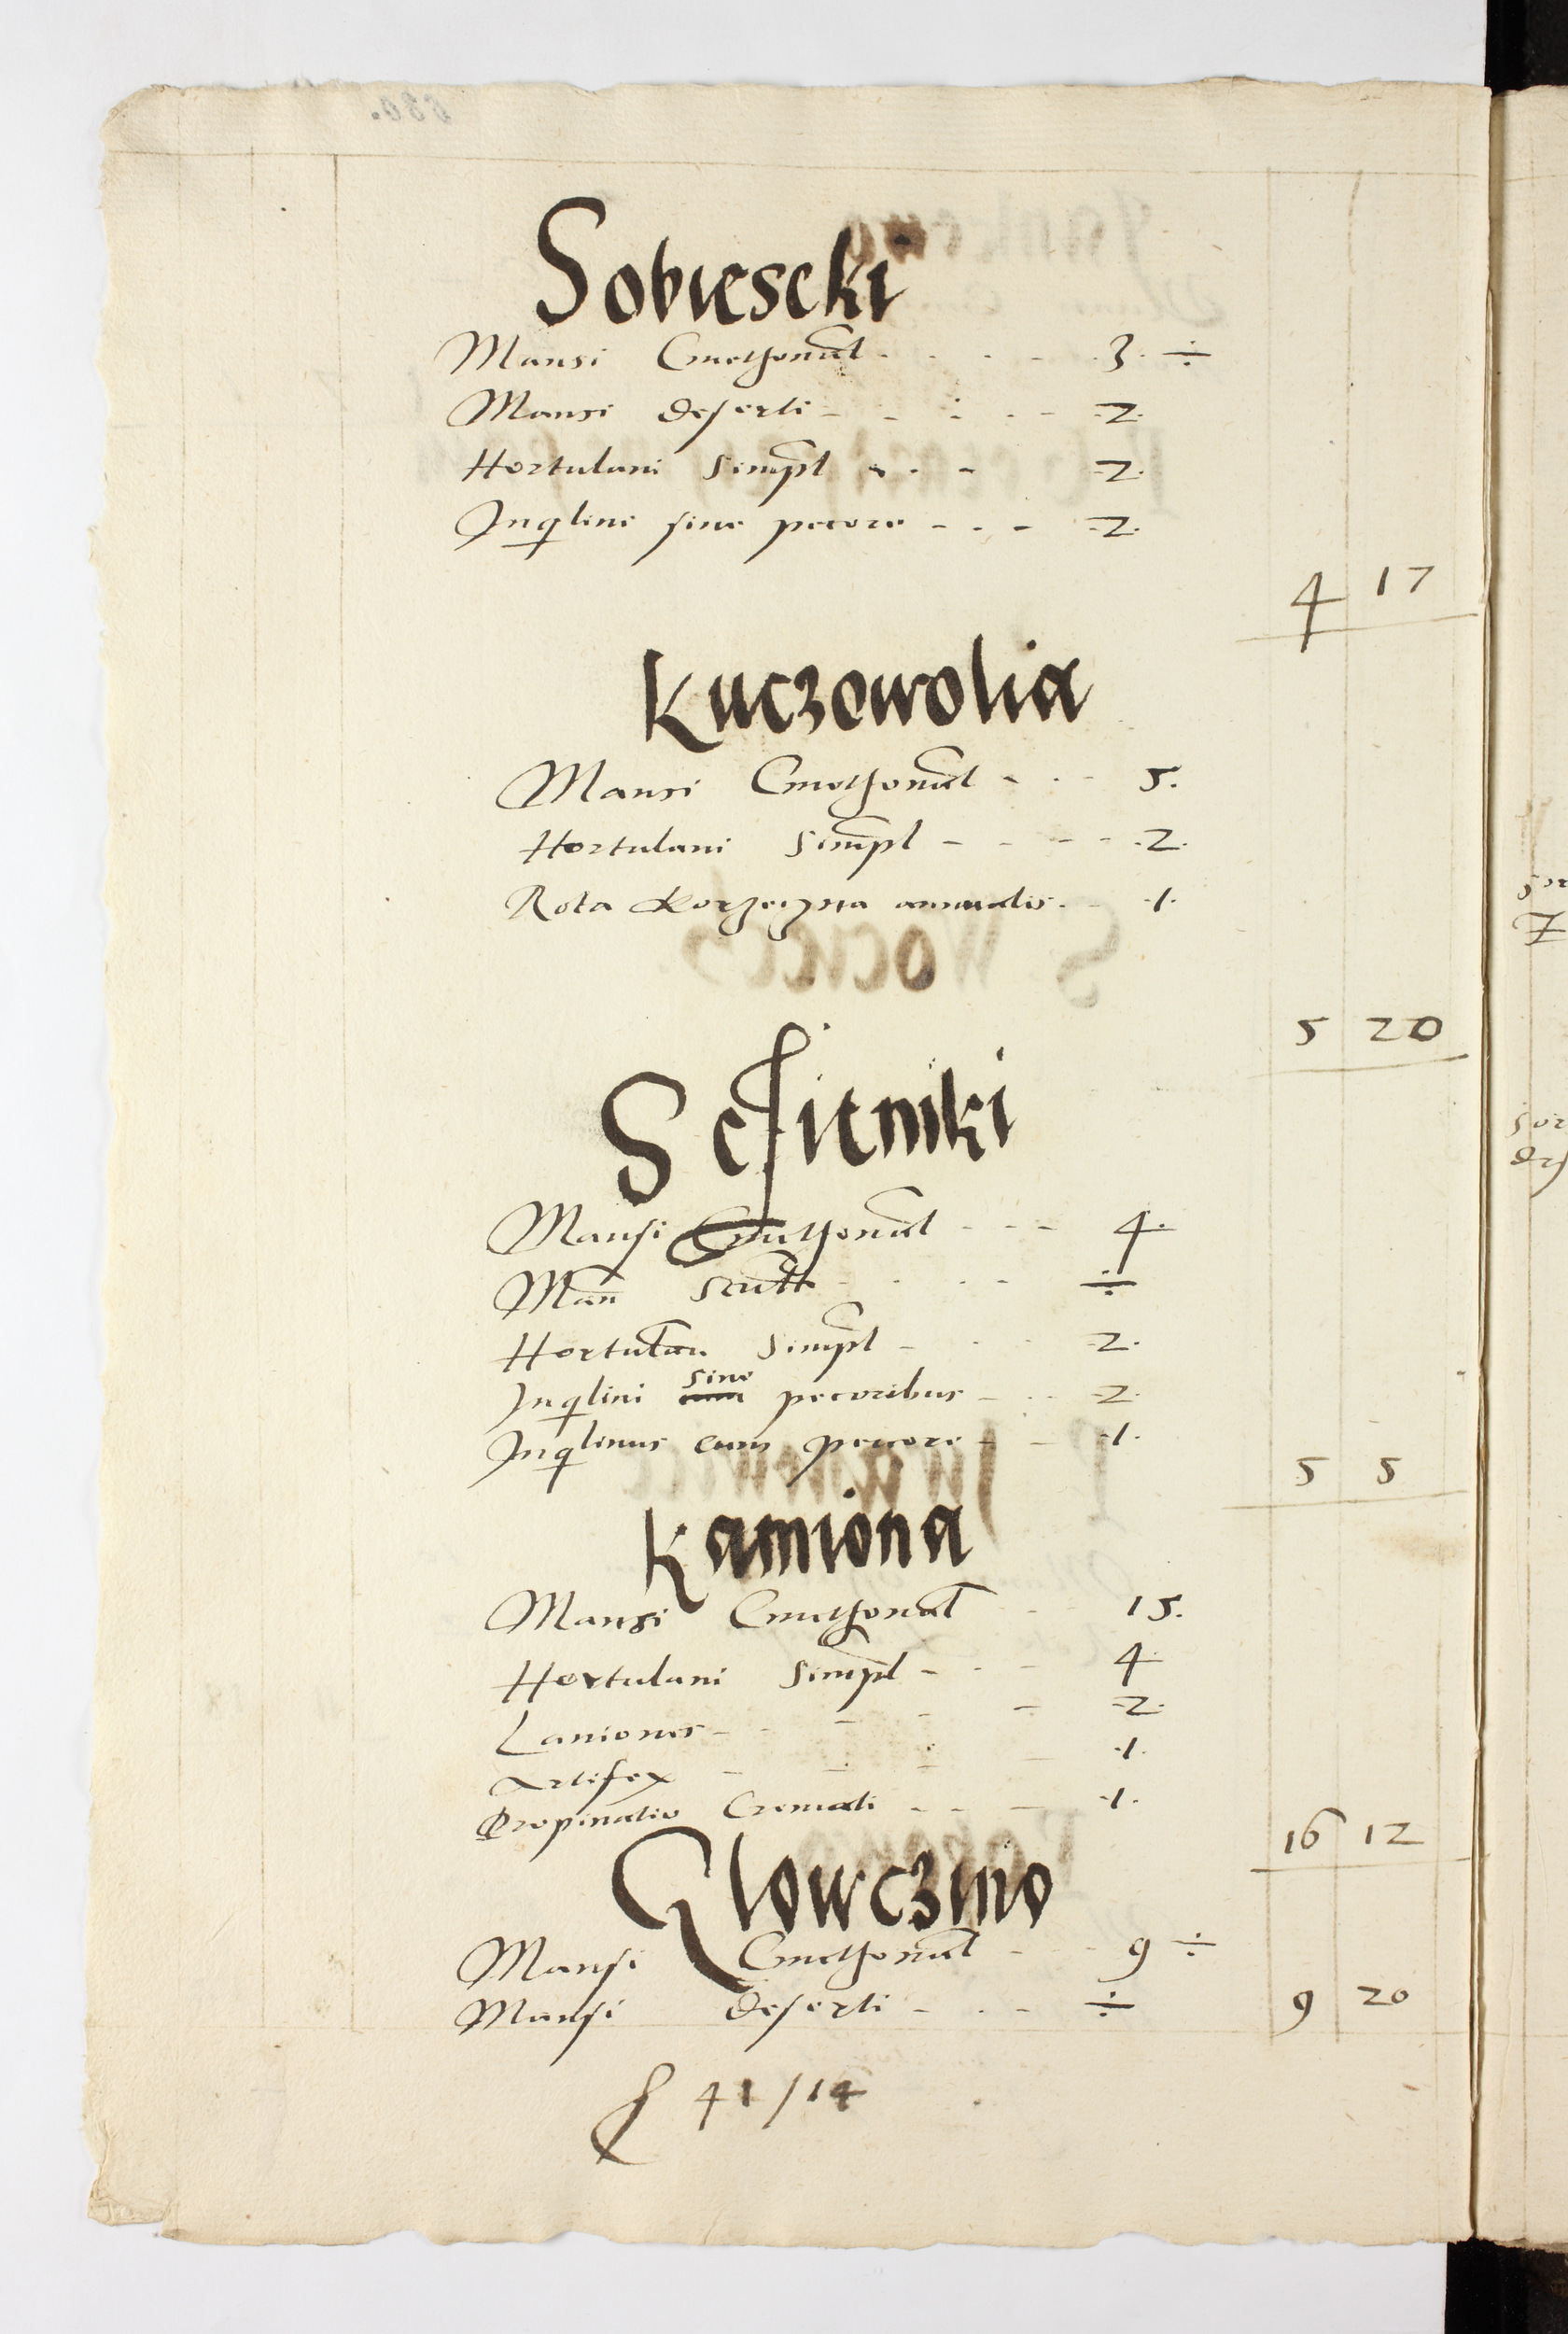 Sobiescki
Mansi Cmethonal - - - - 3 ÷
Mansi deserti - - - - 2
Hortulani simpl - - - 2
Inqlini sine pecore - - - 2
4 17
Kuczowolia
Mansi Cmethonal - - - 5.
Hortulani simpl - - - - 2.
Rota Korzeczna annualis - 1.
5 20
Sczitniki
Mansi Cmethonal - - - 4.
Man scultt - - - ÷
Hortulan simpl - - - 2.
Inqlini cum sine pecoribus - - - 2.
Inqlinus cum pecore - - 1.
5 5
Kamiona
Mansi Cmethonal - - 15.
Hortulani simpl - - - 4
Laniones - - - - - 2.
Artifex - - - - 1.
Propinatio Cremati - - - 1.
16 12
Glowczino
Mansi Cmethonal - - - 9 ÷
Mansi deserti - - - ÷
9 20
41/14